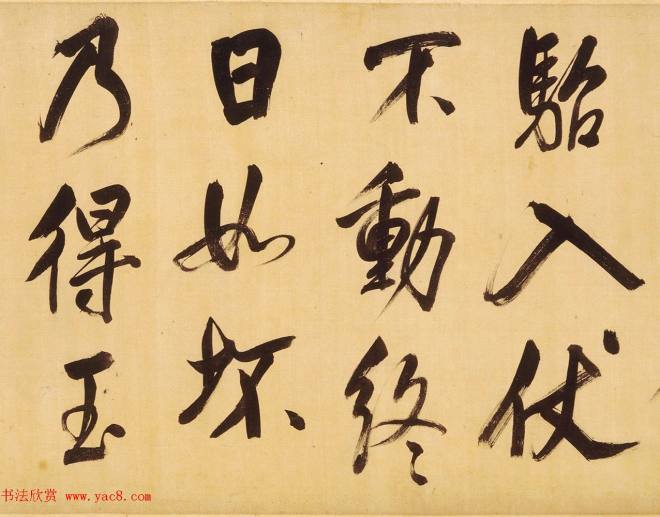 駘入仗
不動終
日如坏
乃得玉
书法欣赏 www.yac8.com